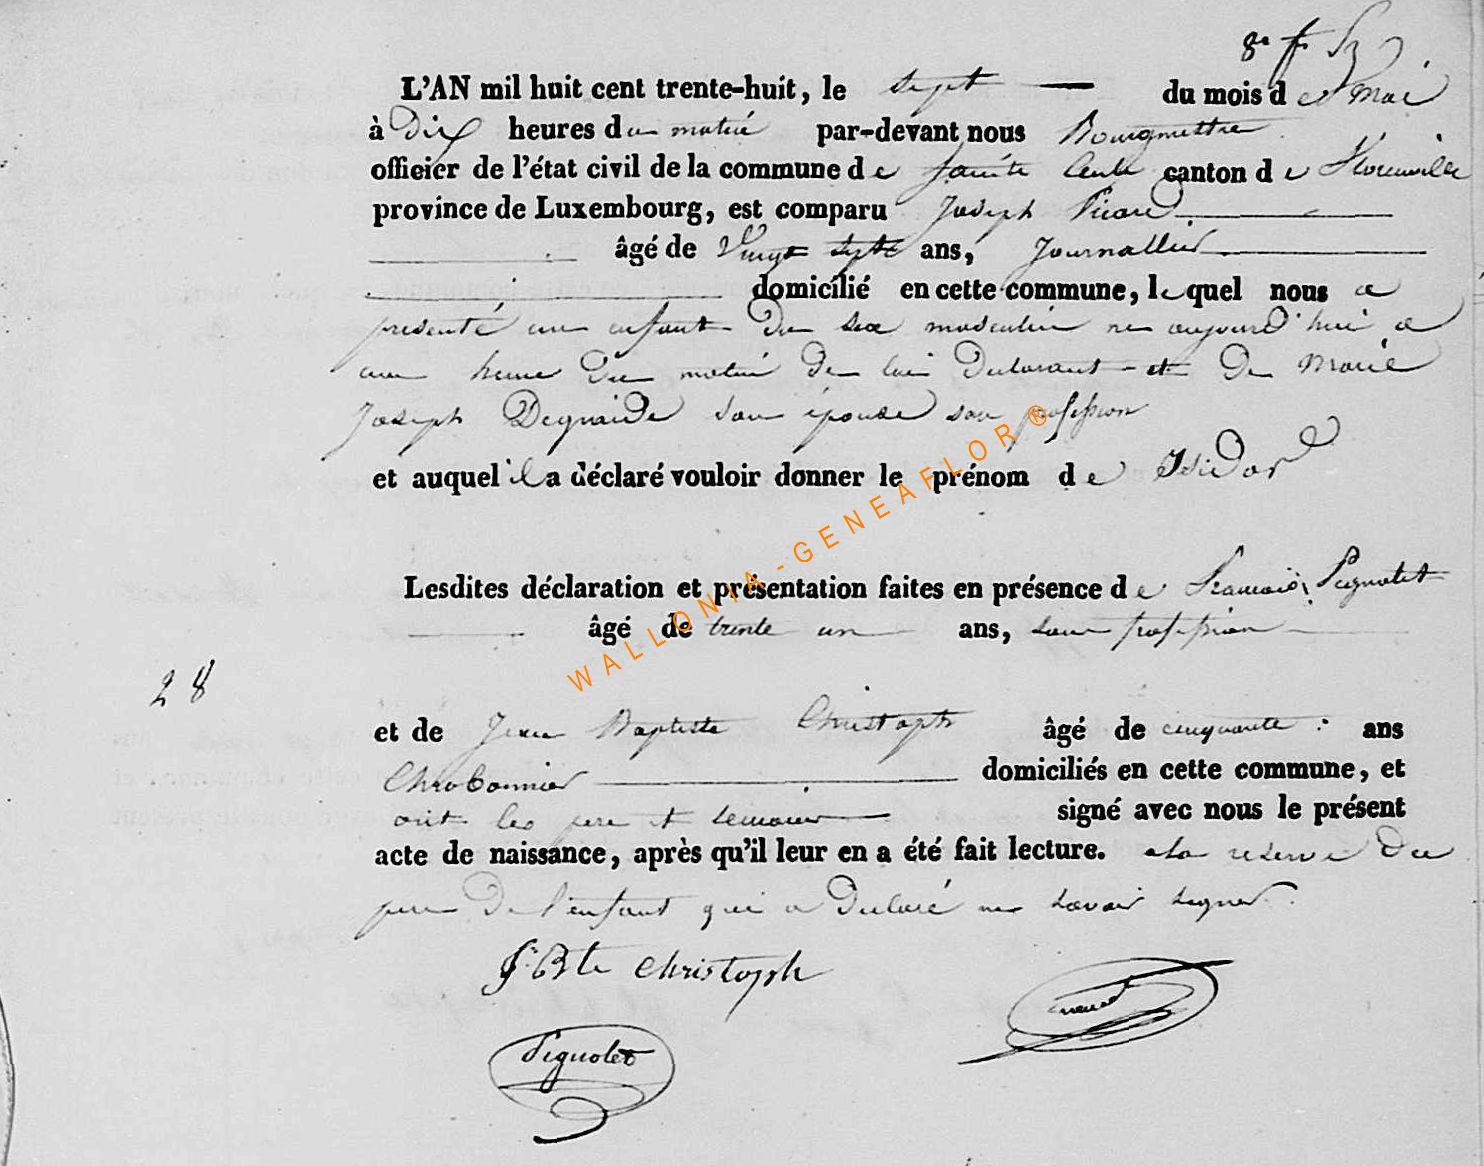 8e f
L'AN mil huit cent trente-huit, le sept du mois de Mai
à Dix heures du matin par-devant nous Bourgmettre
officier de l'état civil de la commune de Sainte Cecile canton de Florenville
province de Luxembourg, est comparu Joseph Picard
âgé de Vingt sept ans, Journallier
domicilié en cette commune, lequel nous a
presenté un enfant du sex masculin ne aujourd'hui a
une heure du matin de lui Declarant et de Marie
Joseph Degraide son épouse san profession
et auquel il a déclaré vouloir donner le prénom de Isidor
Lesdites déclaration et présentation faites en présence de Francois Pignolet
âgé de trente un ans, sans profession
28
et de Jean Baptiste Christoph âgé de cinquante ans
Chrabonnier domiciliés en cette commune, et
ont les pere et temoins signé avec nous le présent
acte de naissance, après qu'il leur en a été fait lecture. a la reserve du
pere de l'enfant qui a declaré ne savoir signer.
J. Bte Christoph
Pignolet
WALLONIA-GENEAFLOR ®